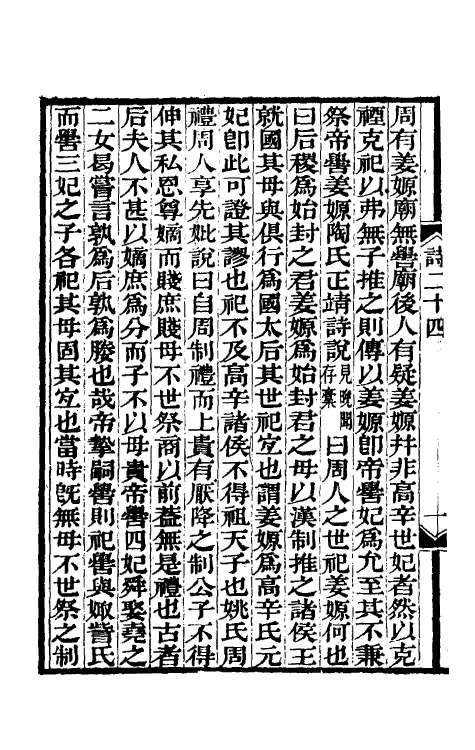 周有姜嫄廟無嚳廟後人有疑姜嫄幷非高辛世妃者然以克
禋克祀以弗無子推之則傳以姜嫄卽帝嚳妃爲允至其不兼
祭帝嚳姜嫄陶氏正靖詩說見晚聞存稾曰周人之世祀姜嫄何也
曰后稷爲始封之君姜嫄爲始封君之母以漢制推之諸侯王
就國其母與俱行爲國太后其世祀宜也謂姜嫄爲高辛氏元
妃卽此可證其謬也祀不及高辛諸侯不得祖天子也姚氏周
禮周人享先妣說曰自周制禮而上貴有厭降之制公子不得
伸其私恩尊嫡而賤庶賤母不世祭商以前葢無是禮也古者
后夫人不甚以嫡庶爲分而子不以母貴帝嚳四妃舜娶堯之
二女曷嘗言孰爲后孰爲媵也哉帝摯嗣嚳則祀嚳與娵訾氏
而嚳三妃之子各祀其母固其宜也當時旣無母不世祭之制
詩二十四